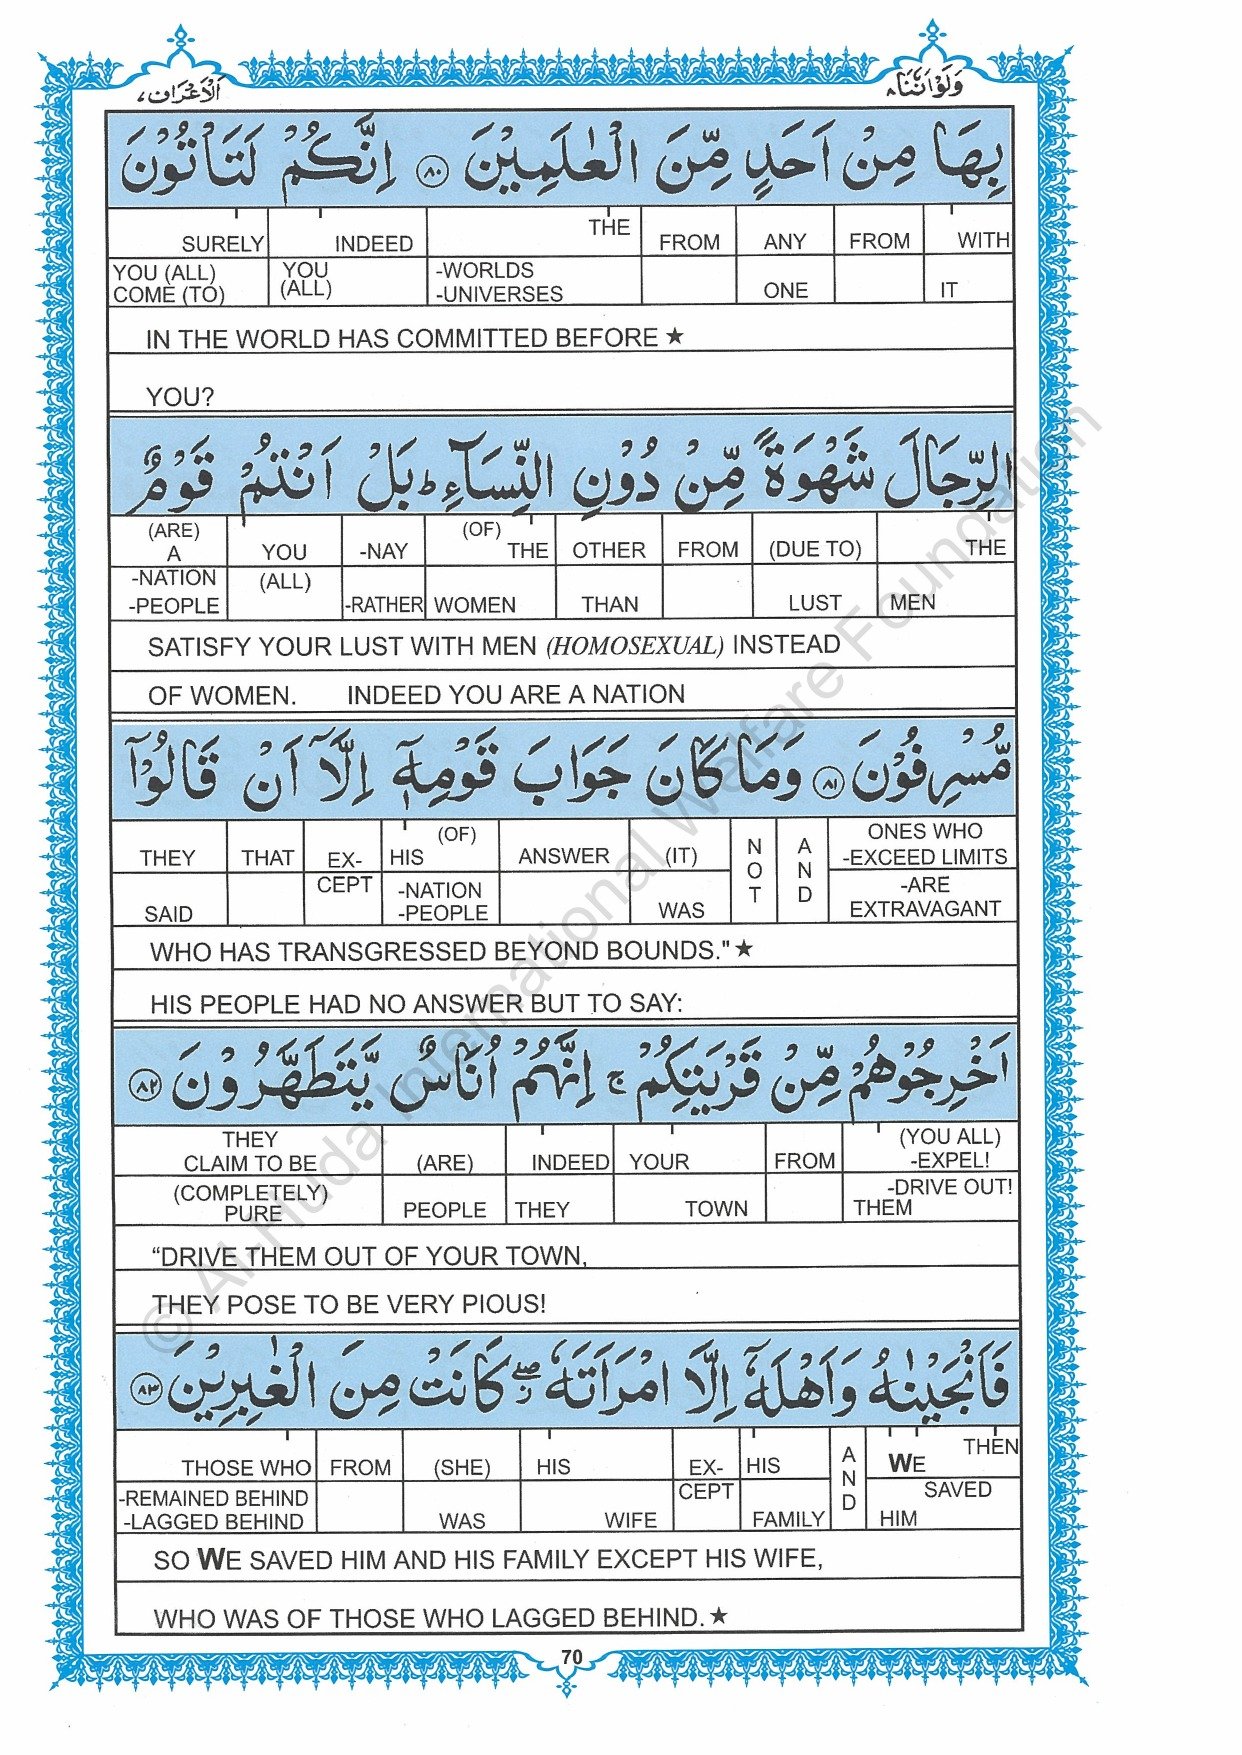 الاعراف ٧
ولواننا ٨
بِهَا مِنْ اَحَدٍ مِّنَ الْعٰلَمِيْنَ ﴿٨٠﴾ اِنَّكُمْ لَتَاْتُوْنَ
SURELY INDEED THE FROM ANY FROM WITH
YOU (ALL) COME (TO) YOU (ALL) -WORLDS -UNIVERSES ONE IT
IN THE WORLD HAS COMMITTED BEFORE ★
YOU?
الرِّجَالَ شَهْوَةً مِّنْ دُوْنِ النِّسَآءِ ؕ بَلْ اَنْتُمْ قَوْمٌ
(ARE) A YOU -NAY (OF) THE OTHER FROM (DUE TO) THE
-NATION -PEOPLE (ALL) -RATHER WOMEN THAN LUST MEN
SATISFY YOUR LUST WITH MEN (HOMOSEXUAL) INSTEAD
OF WOMEN. INDEED YOU ARE A NATION
مُّسْرِفُوْنَ ﴿٨١﴾ وَمَا كَانَ جَوَابَ قَوْمِهٖٓ اِلَّآ اَنْ قَالُوْٓا
THEY THAT EX- HIS (OF) ANSWER (IT) NOT AND ONES WHO -EXCEED LIMITS
SAID CEPT -NATION -PEOPLE WAS -ARE EXTRAVAGANT
WHO HAS TRANSGRESSED BEYOND BOUNDS." ★
HIS PEOPLE HAD NO ANSWER BUT TO SAY:
اَخْرِجُوْهُمْ مِّنْ قَرْيَتِكُمْ ۚ اِنَّهُمْ اُنَاسٌ يَّتَطَهَّرُوْنَ ﴿٨٢﴾
THEY CLAIM TO BE (ARE) INDEED YOUR FROM (YOU ALL) -EXPEL!
(COMPLETELY) PURE PEOPLE THEY TOWN -DRIVE OUT! THEM
“DRIVE THEM OUT OF YOUR TOWN,
THEY POSE TO BE VERY PIOUS!
فَاَنْجَيْنٰهُ وَاَهْلَهٗٓ اِلَّا امْرَاَتَهٗ ۖ كَانَتْ مِنَ الْغٰبِرِيْنَ ﴿٨٣﴾
THOSE WHO FROM (SHE) HIS EX- HIS AND WE THEN
-REMAINED BEHIND -LAGGED BEHIND WAS WIFE CEPT FAMILY SAVED HIM
SO WE SAVED HIM AND HIS FAMILY EXCEPT HIS WIFE,
WHO WAS OF THOSE WHO LAGGED BEHIND. ★
70
© Al-Huda International Welfare Foundation